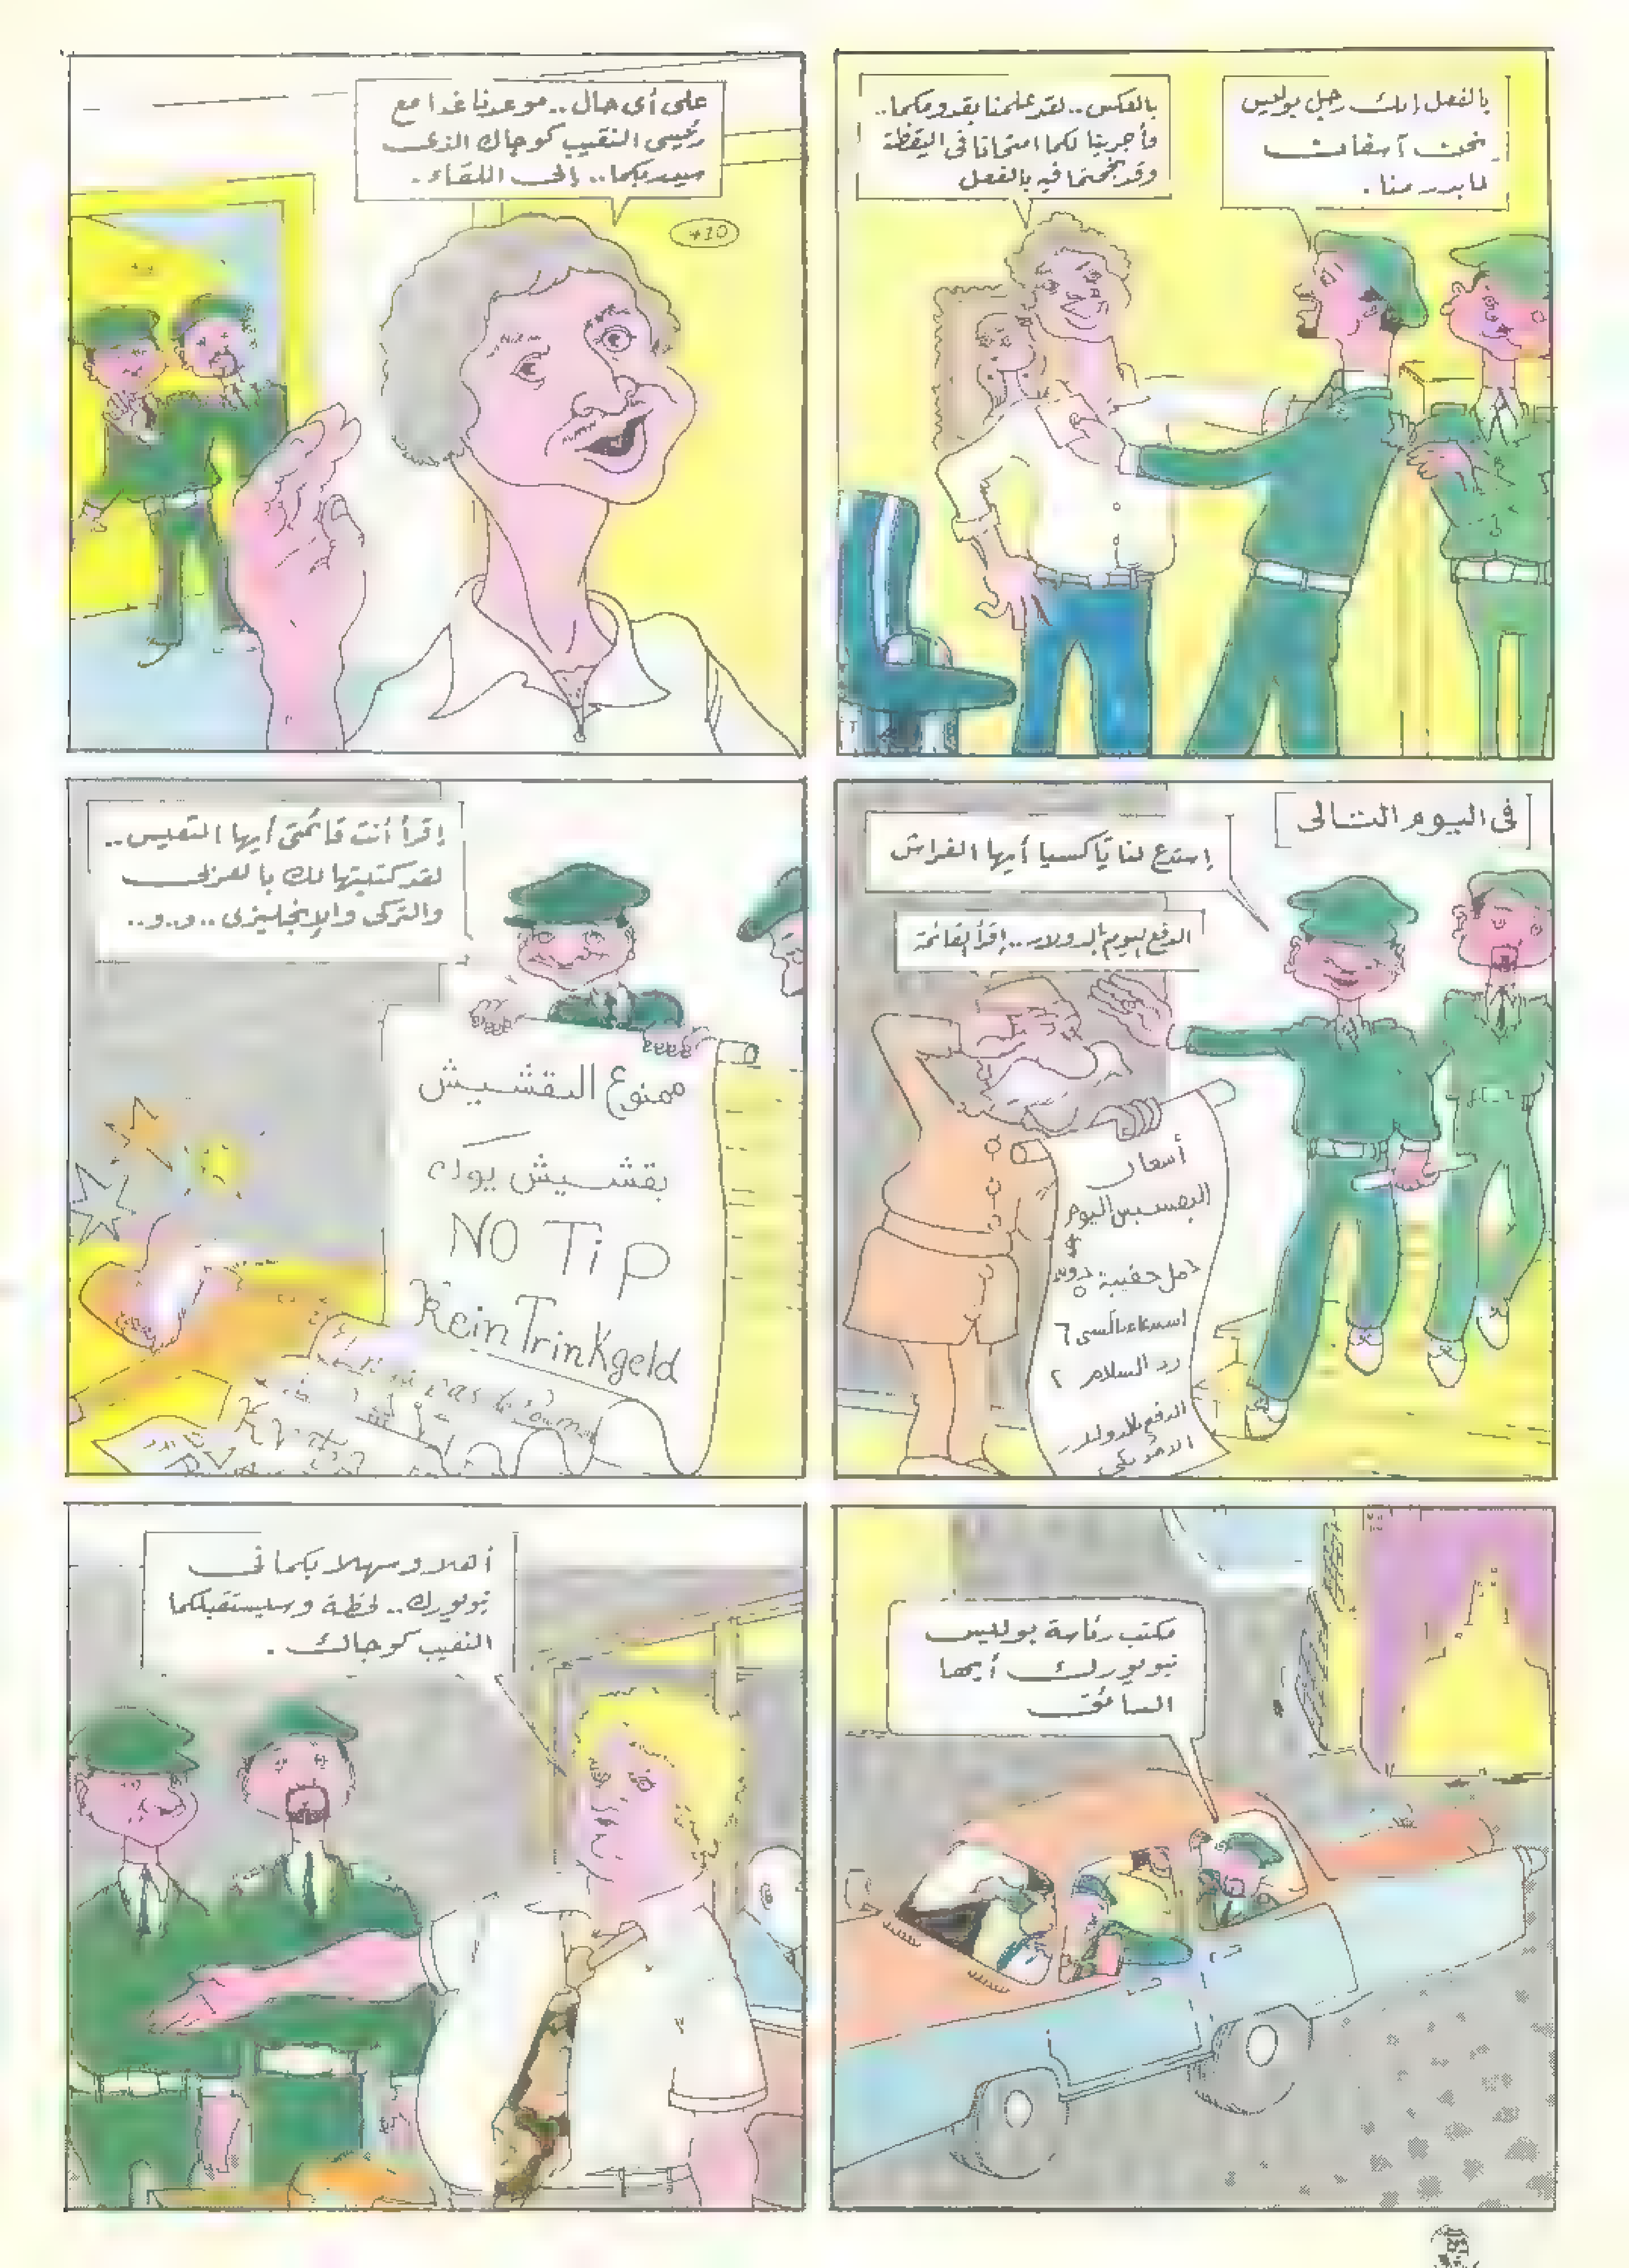 بالفعل إنك رجل بوليس
نحن آسفان
لما بدر منا .
بالعكس .. لقد علمنا بقدومكما ..
وأجرينا لكما امتحانا فى اليقظة
وقد نجحتما فيه بالفعل
على أى حال .. موعدنا غدا مع
رئيسى النقيب كوجاك الذى
سيدربكما .. إلى اللقاء .
فى اليوم التالى
إستدع لنا تاكسيا أيها الفراش
الدفع اليوم بالدولار .. إقرأ القائمة
أسعار
البقشيش اليوم
$
حمل حقيبة
استدعاء تاكسى ٦
رد السلام ٢
الدفع بالدولار
الامريكى
إقرأ أنت قائمتى أيها التعيس ..
لقد كتبتها لك بالعربى
والتركى والإنجليزى .. و .. و ..
ممنوع البقشيش
بقشيش يوك
NO TiP
Kein TrinKgeld
مكتب رئاسة بوليس
نيويورك أيها
السائق
أهلا وسهلا بكما فى
نيويورك .. لحظة وسيستقبلكما
النقيب كوجاك .